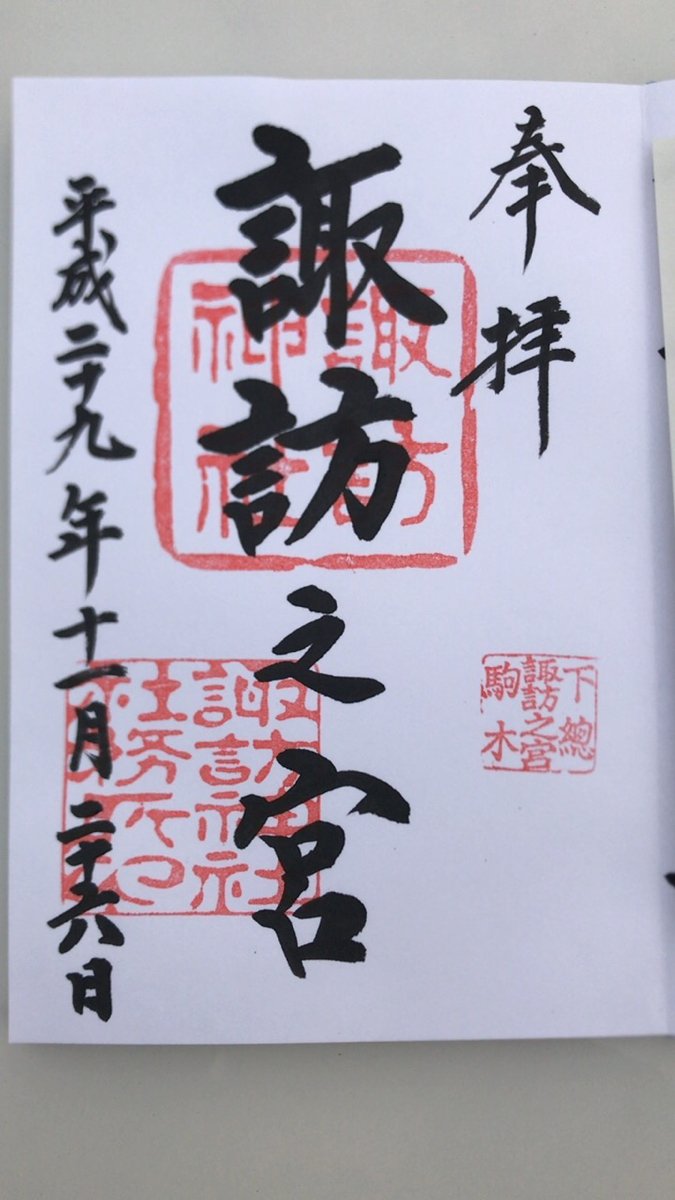 奉拝
下總
諏訪之宮
駒木
諏訪之宮
諏訪
神社
諏訪神社
社務所印
平成二十九年十一月二十六日